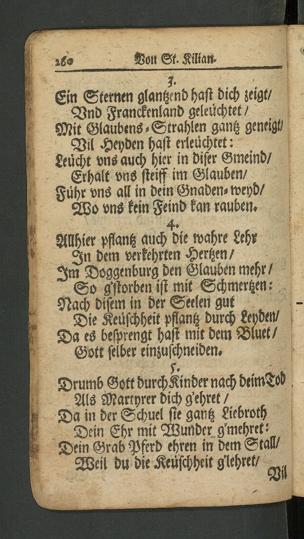 280 Von St. Kilian.
3.
Ein Sternen glantzend hast dich zeigt/
Vnd Franckenland geleüchtet/
Mit Glaubens-Strahlen gantz geneigt/
Vil Heyden hast erleüchtet:
Leücht vns auch hier in diser Gmeind/
Erhalt vns steiff im Glauben/
Führ vns all in dein Gnaden-weyd/
Wo vns kein Feind kan rauben.
4.
Allhier pflantz auch die wahre Lehr
In dem verkehrten Hertzen/
Im Doggenburg den Glauben mehr/
So g'storben ist mit Schmertzen:
Nach disem in der Seelen gut
Die Keüschheit pflantz durch Leyden/
Da es besprengt hast mit dem Bluet/
Gott selber einzuschneiden.
5.
Drumb Gott durch Kinder nach deim Tod
Als Martyrer dich g'ehret/
Da in der Schuel sie gantz Liebroth
Dein Ehr mit Wunder g'mehret:
Dein Grab Pferd ehren in dem Stall/
Weil du die Keüschheit g'lehret/
Vil